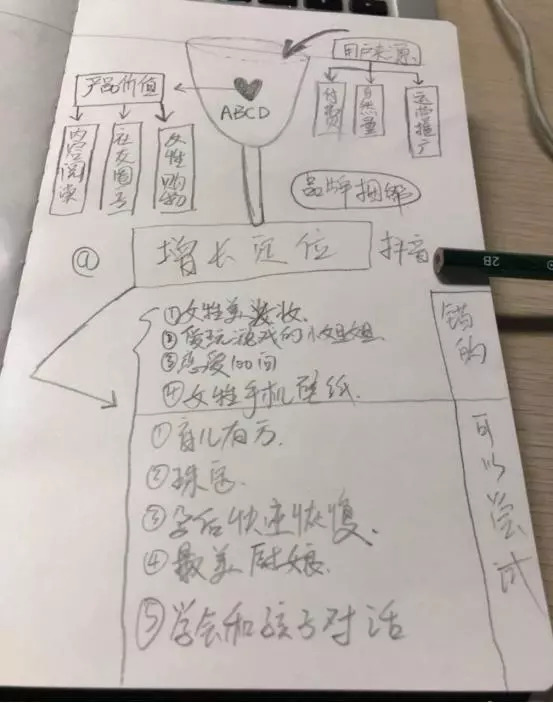 用户来源
产品价值
ABCD
付费
自然量
运营推广
内容阅读
社交圈子
女性购物
品牌捆绑
@
增长定位
抖音
2B
①女性美妆
②爱玩游戏的小姐姐
③恋爱100问
④女性手机壁纸
错的
①育儿有方
②珠宝
③孕后快速恢复
④最美厨娘
⑤学会和孩子对话
可以尝试